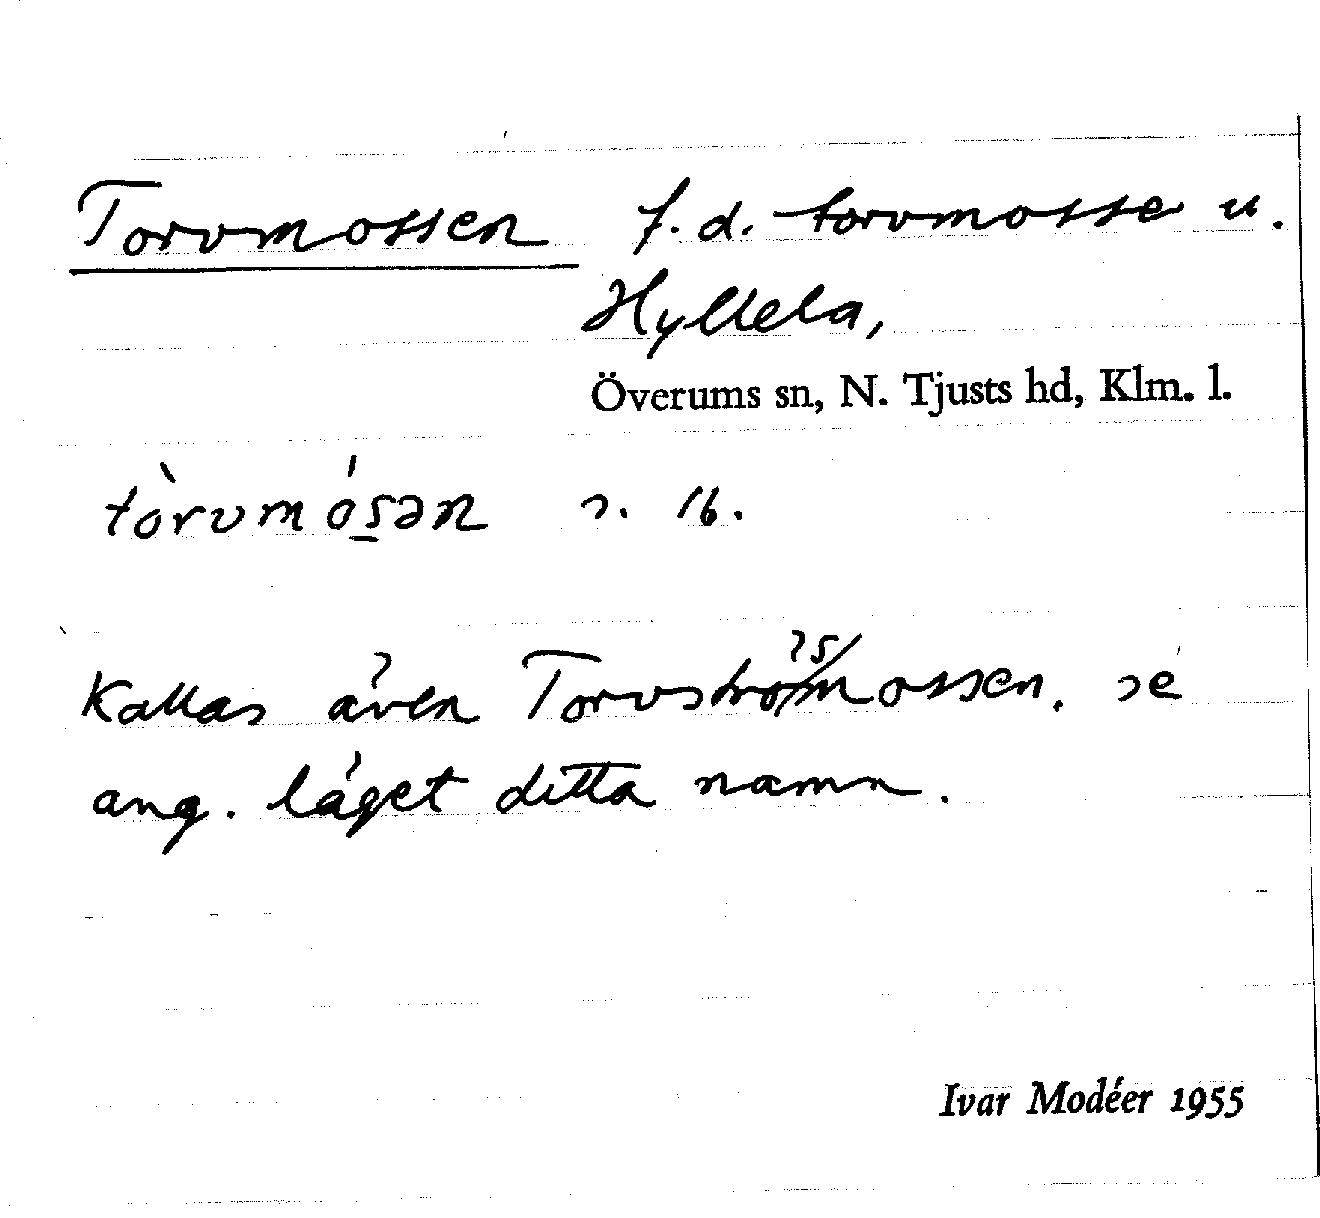 Torvmossen f.d. torvmosse u.
Hyllela,
Överums sn, N. Tjusts hd, Klm. l.
tòrvmósən s. 16.
Kallas även Torvströ/smossen. se
ang. läget detta namn.
Ivar Modéer 1955